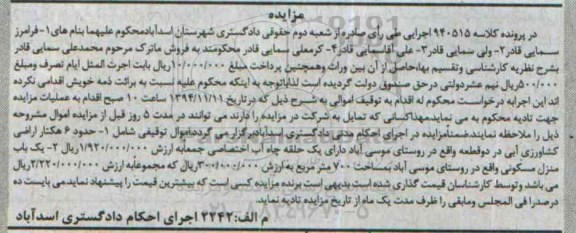 مزایده
در پرونده کلاسه ۹۴۰۵۱۵ اجرایی طی رای صادره از شعبه دوم حقوقی دادگستری شهرستان اسدآباد محکوم علیهما بنام های ۱- فرامرز
سمایی قادر ۲- ولی سمایی قادر ۳- علی آقا سمایی قادر ۴- کرمعلی سمایی قادر محکومند به فروش ماترک مرحوم محمدعلی سمایی قادر
بشرح نظریه کارشناسی و تقسیم بهاء حاصل از آن بین وراث و همچنین پرداخت مبلغ ۱۰/۰۰۰/۰۰۰ ریال بابت اجرت المثل ایام تصرف و مبلغ
۵۰۰/۰۰۰ ریال نیم عشر دولتی در حق صندوق دولت گردیده است لذا باتوجه به اینکه محکوم علیه نسبت به برائت ذمه خویش اقدامی نکرده
اند این اجرا به درخواست محکوم له اقدام به توقیف اموالی به شرح ذیل که در تاریخ ۱۳۹۴/۱۱/۱۱ ساعت ۱۰ صبح اقدام به عملیات مزایده
جهت تادیه محکوم به می نماید مهذا کسانی که تمایل به شرکت در مزایده را دارند می توانند در مدت ۵ روز قبل از مزایده اموال مشروحه
ذیل را ملاحظه نمایند ضمنا مزایده در اجرای احکام مدنی دادگستری اسدآباد برگزار می گردد اموال توقیفی شامل ۱- حدود ۶ هکتار اراضی
کشاورزی آبی در دو قطعه واقع در روستای موسی آباد دارای یک حلقه چاه آب اختصاصی جمعا به ارزش ۱/۹۲۰/۰۰۰/۰۰۰ ریال ۲- یک باب
منزل مسکونی واقع در روستای موسی آباد بمساحت ۷۰۰ متر مربع به ارزش ۳۰۰/۰۰۰/۰۰۰ ریال که مجموعا به ارزش ۲/۲۲۰/۰۰۰/۰۰۰ ریال
می باشد و توسط کارشناسان قیمت گذاری شده است بدیهی است برنده مزایده کسی است که بیشترین قیمت را پیشنهاد نماید می بایست ده
درصد را فی المجلس و مابقی را ظرف مدت یک ماه از تاریخ مزایده تادیه نماید.
م الف: ۲۲۴۲ اجرای احکام دادگستری اسدآباد